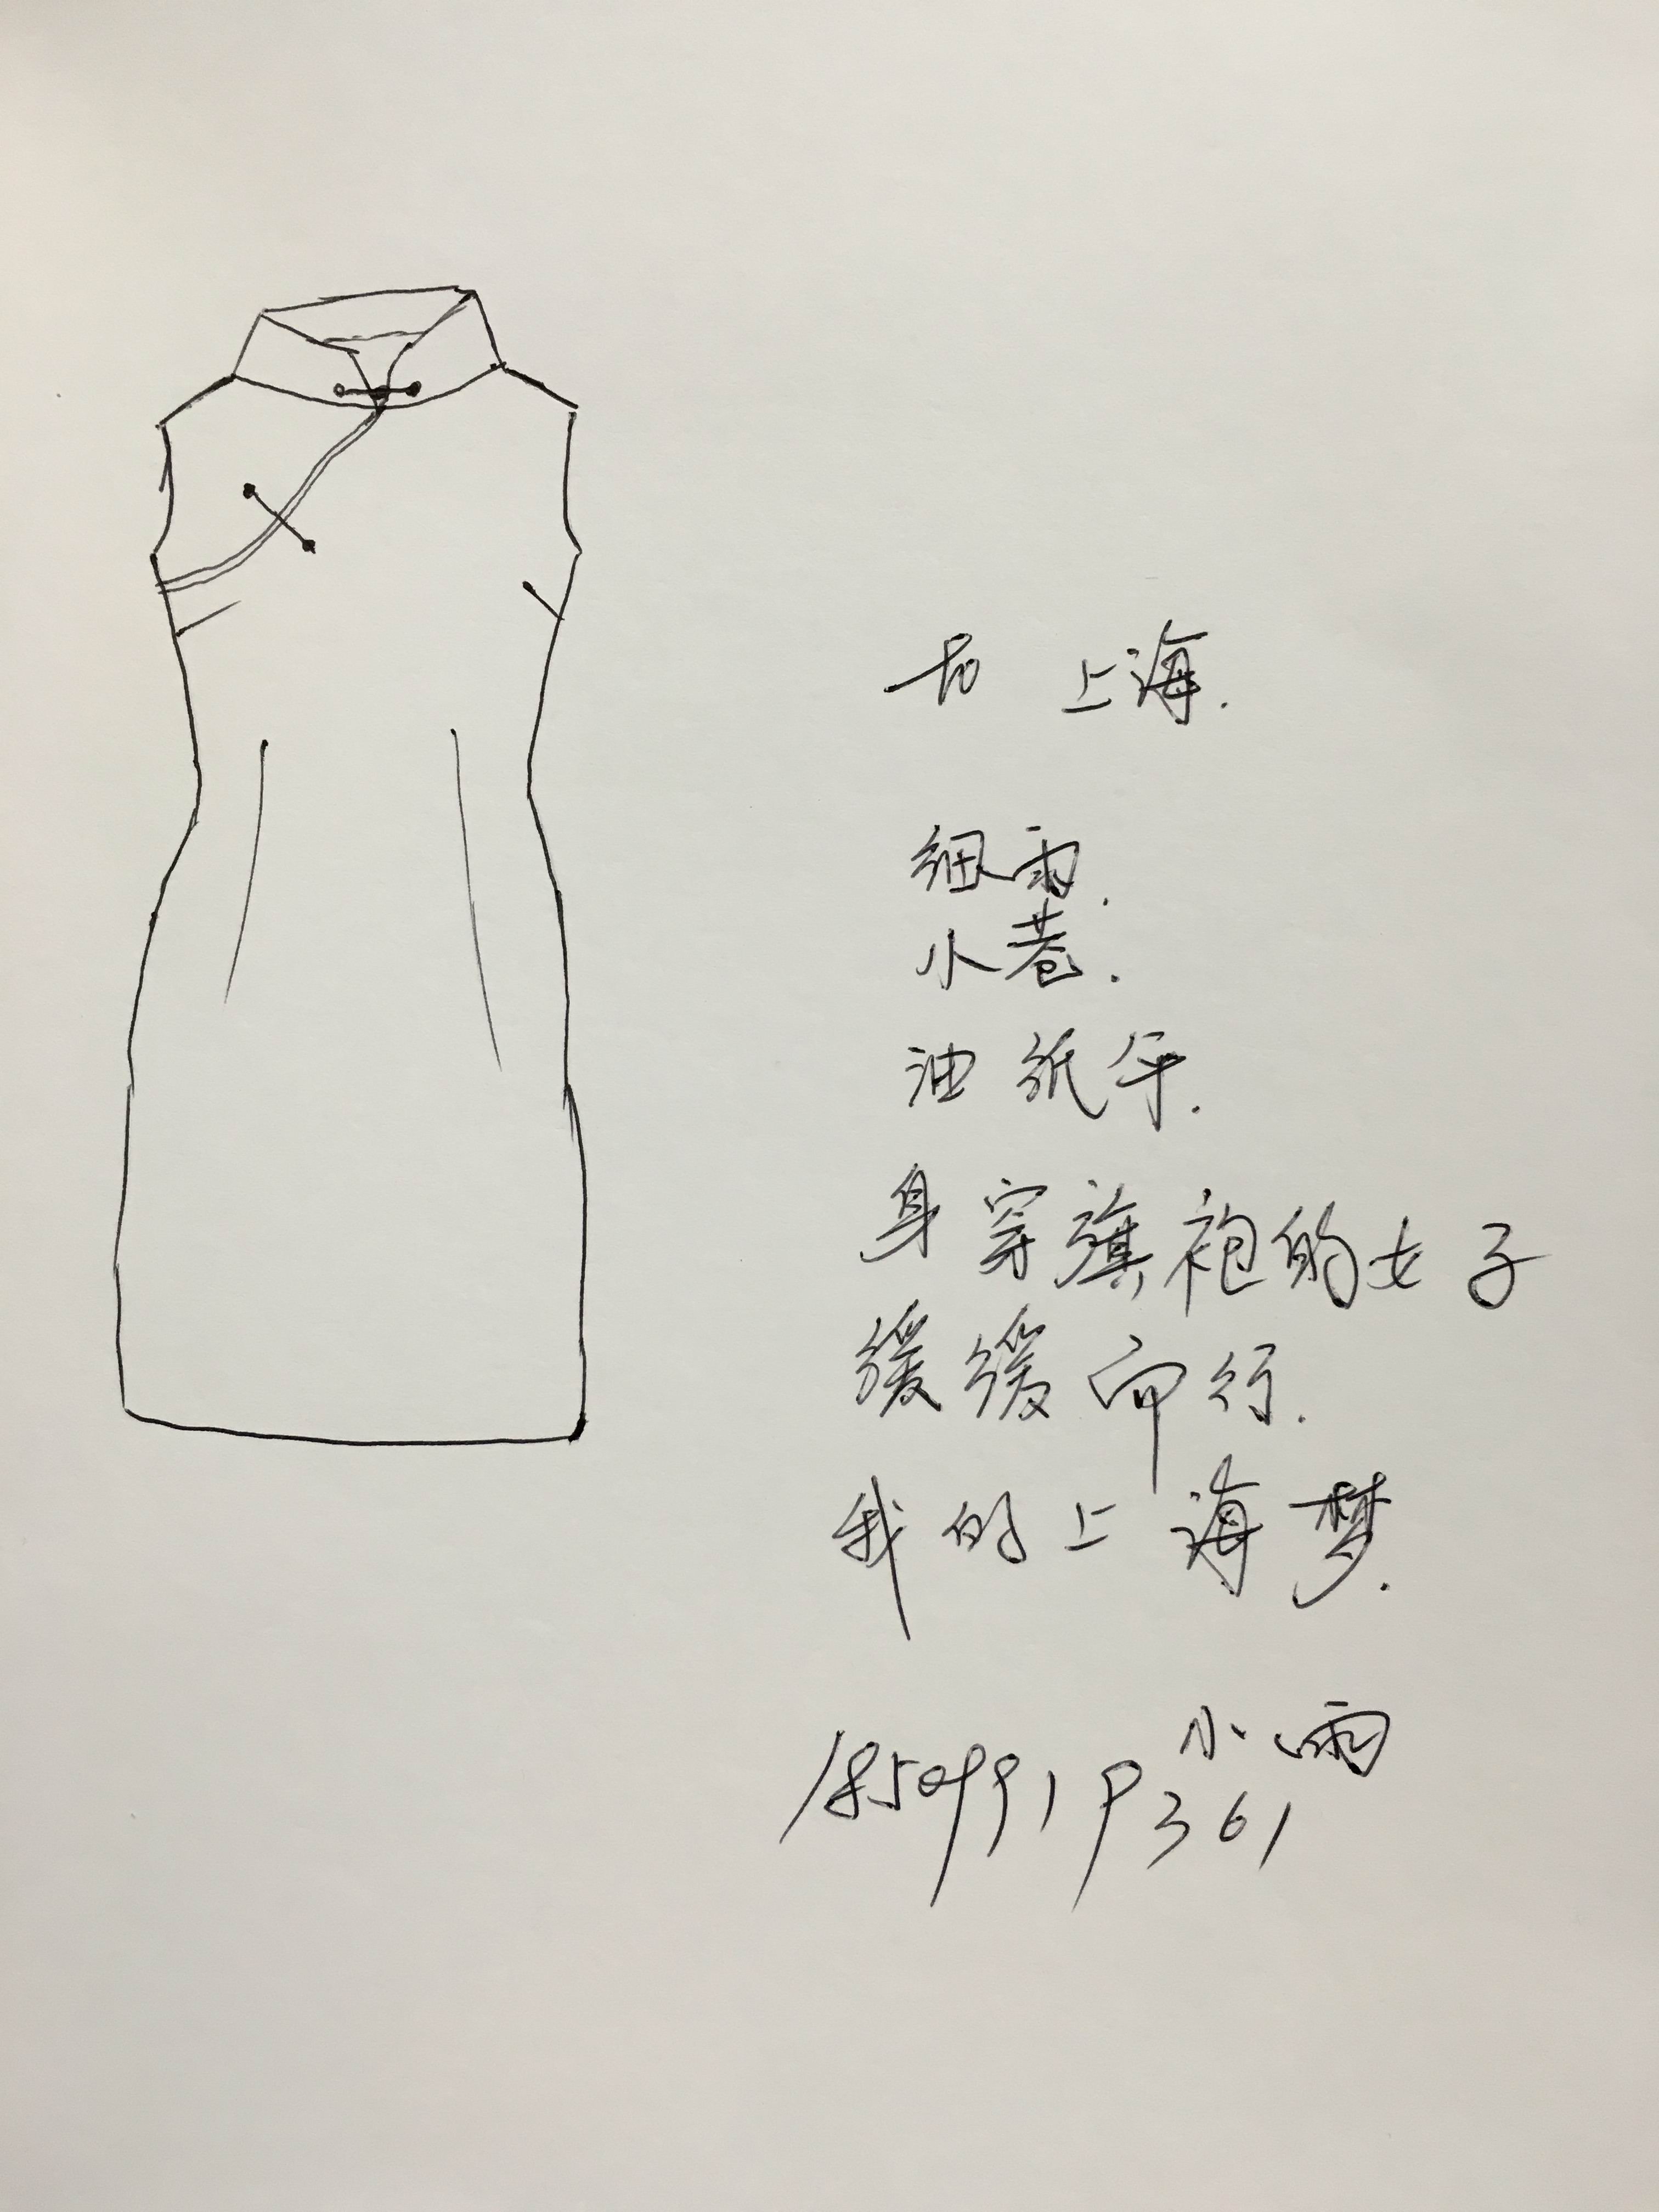 to 上海.
细雨.
小巷.
油纸伞.
身穿旗袍的女子
缓缓而行.
我的上海梦.
小雨
18509919361